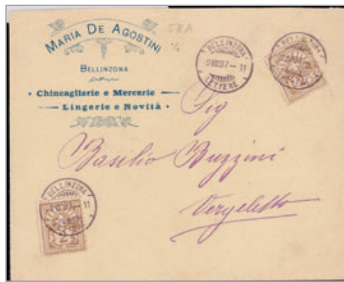 MARIA DE AGOSTINI
BELLINZONA
Chincaglierie e Mercerie
Lingerie e Novità
BELLINZONA
LETTERE
Sig
Basilio Buzzini
Vergeletto
BELLINZONA
11
2